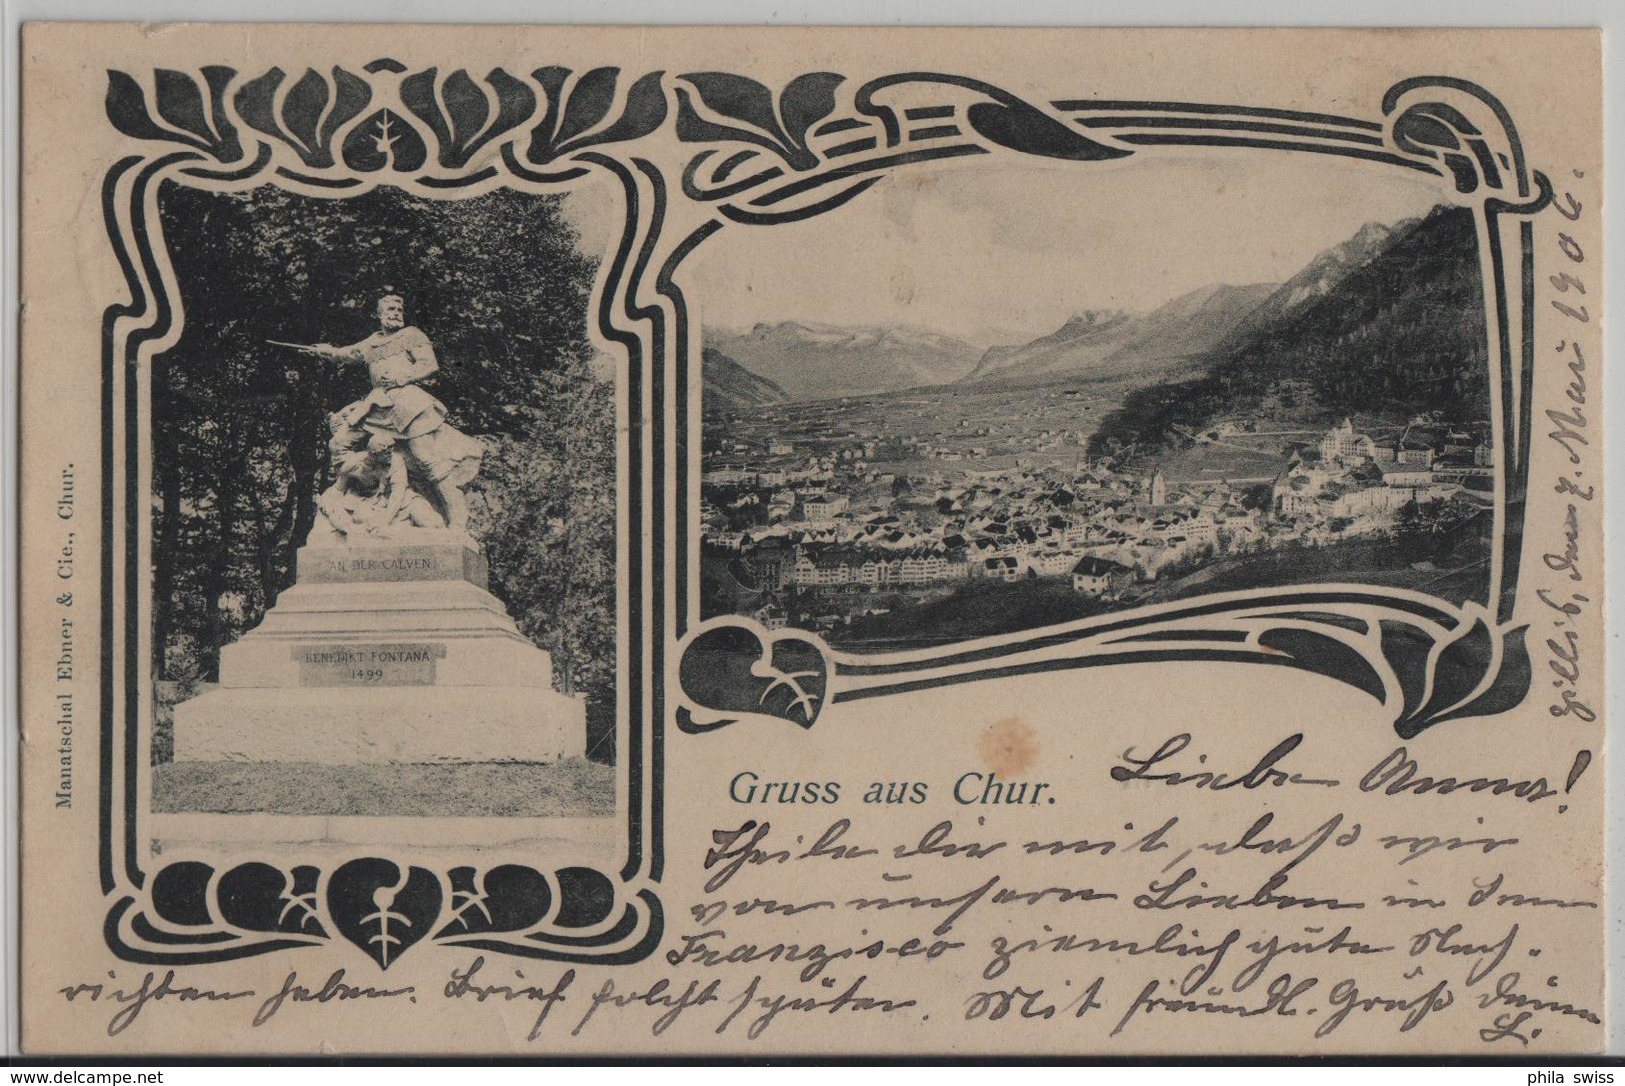 Manatschal Ebner & Cie., Chur.
AN DER CALVEN
BENEDIKT FONTANA
1499
Gruss aus Chur.
Zillis, den 7. Mai 1906.
Liebe Anna!
Theile dir mit, daß wir
von unsern Lieben in San
Franzisco ziemlich gute Nach-
richten haben. Brief folcht später. Mit freundl. Gruß Deine
L.
phila swiss